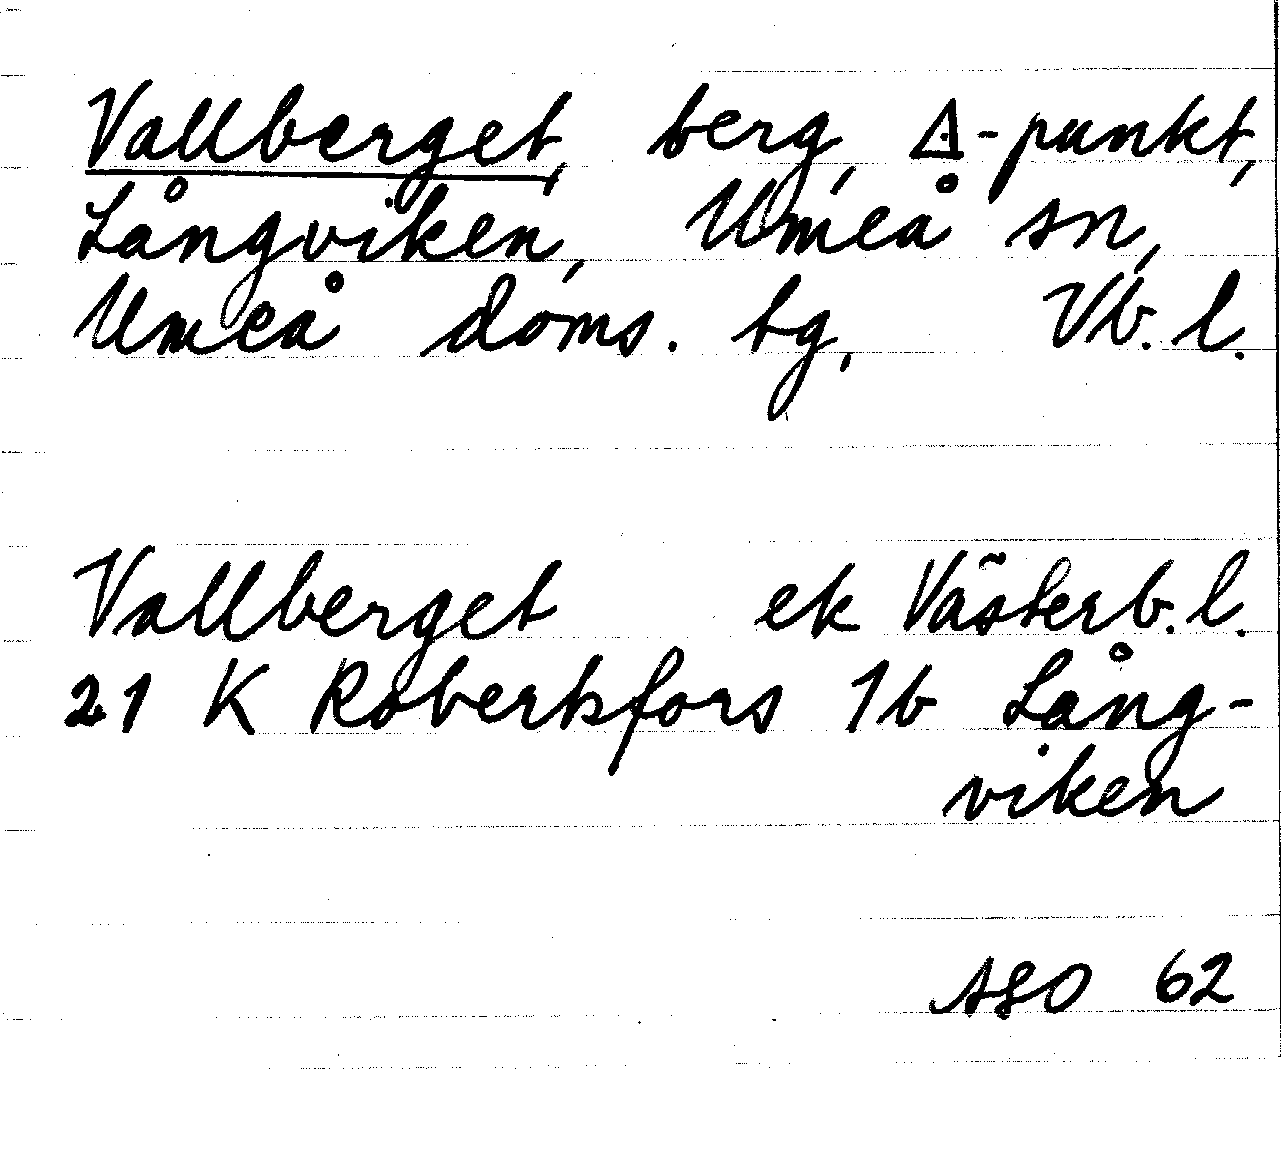 Vallberget, berg, △-punkt,
Långviken, Umeå sn,
Umeå doms. tg, Vb. l.
Vallberget ek Västerb. l.
21 K Robertsfors 1b Lång-
viken
ASO 62